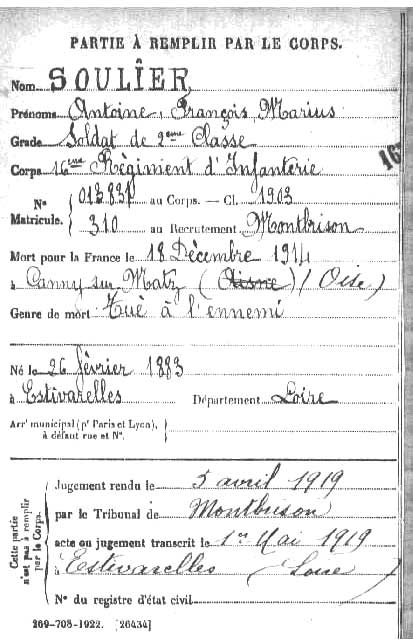 PARTIE À REMPLIR PAR LE CORPS.
Nom SOULIER
Prénoms Antoine, François Marius
Grade Soldat de 2ème Classe
Corps 16ème Règiment d'Infanterie
N° Matricule. { 013831 au Corps. — Cl. 1903
310 au Recrutement Montbrison
Mort pour la France le 18 Décembre 1914
à Canny sur Matz (Aisne) (Oise)
Genre de mort Tué à l'ennemi
Né le 26 février 1883
à Estivarelles Département Loire
Arrt municipal (pr Paris et Lyon),
à défaut rue et N°.
Cette partie n'est pas à remplir par le Corps.
Jugement rendu le 5 avril 1919
par le Tribunal de Montbrison
acte ou jugement transcrit le 1er Mai 1919
à Estivarelles (Loire)
N° du registre d'état civil
269-708-1922. [26434]